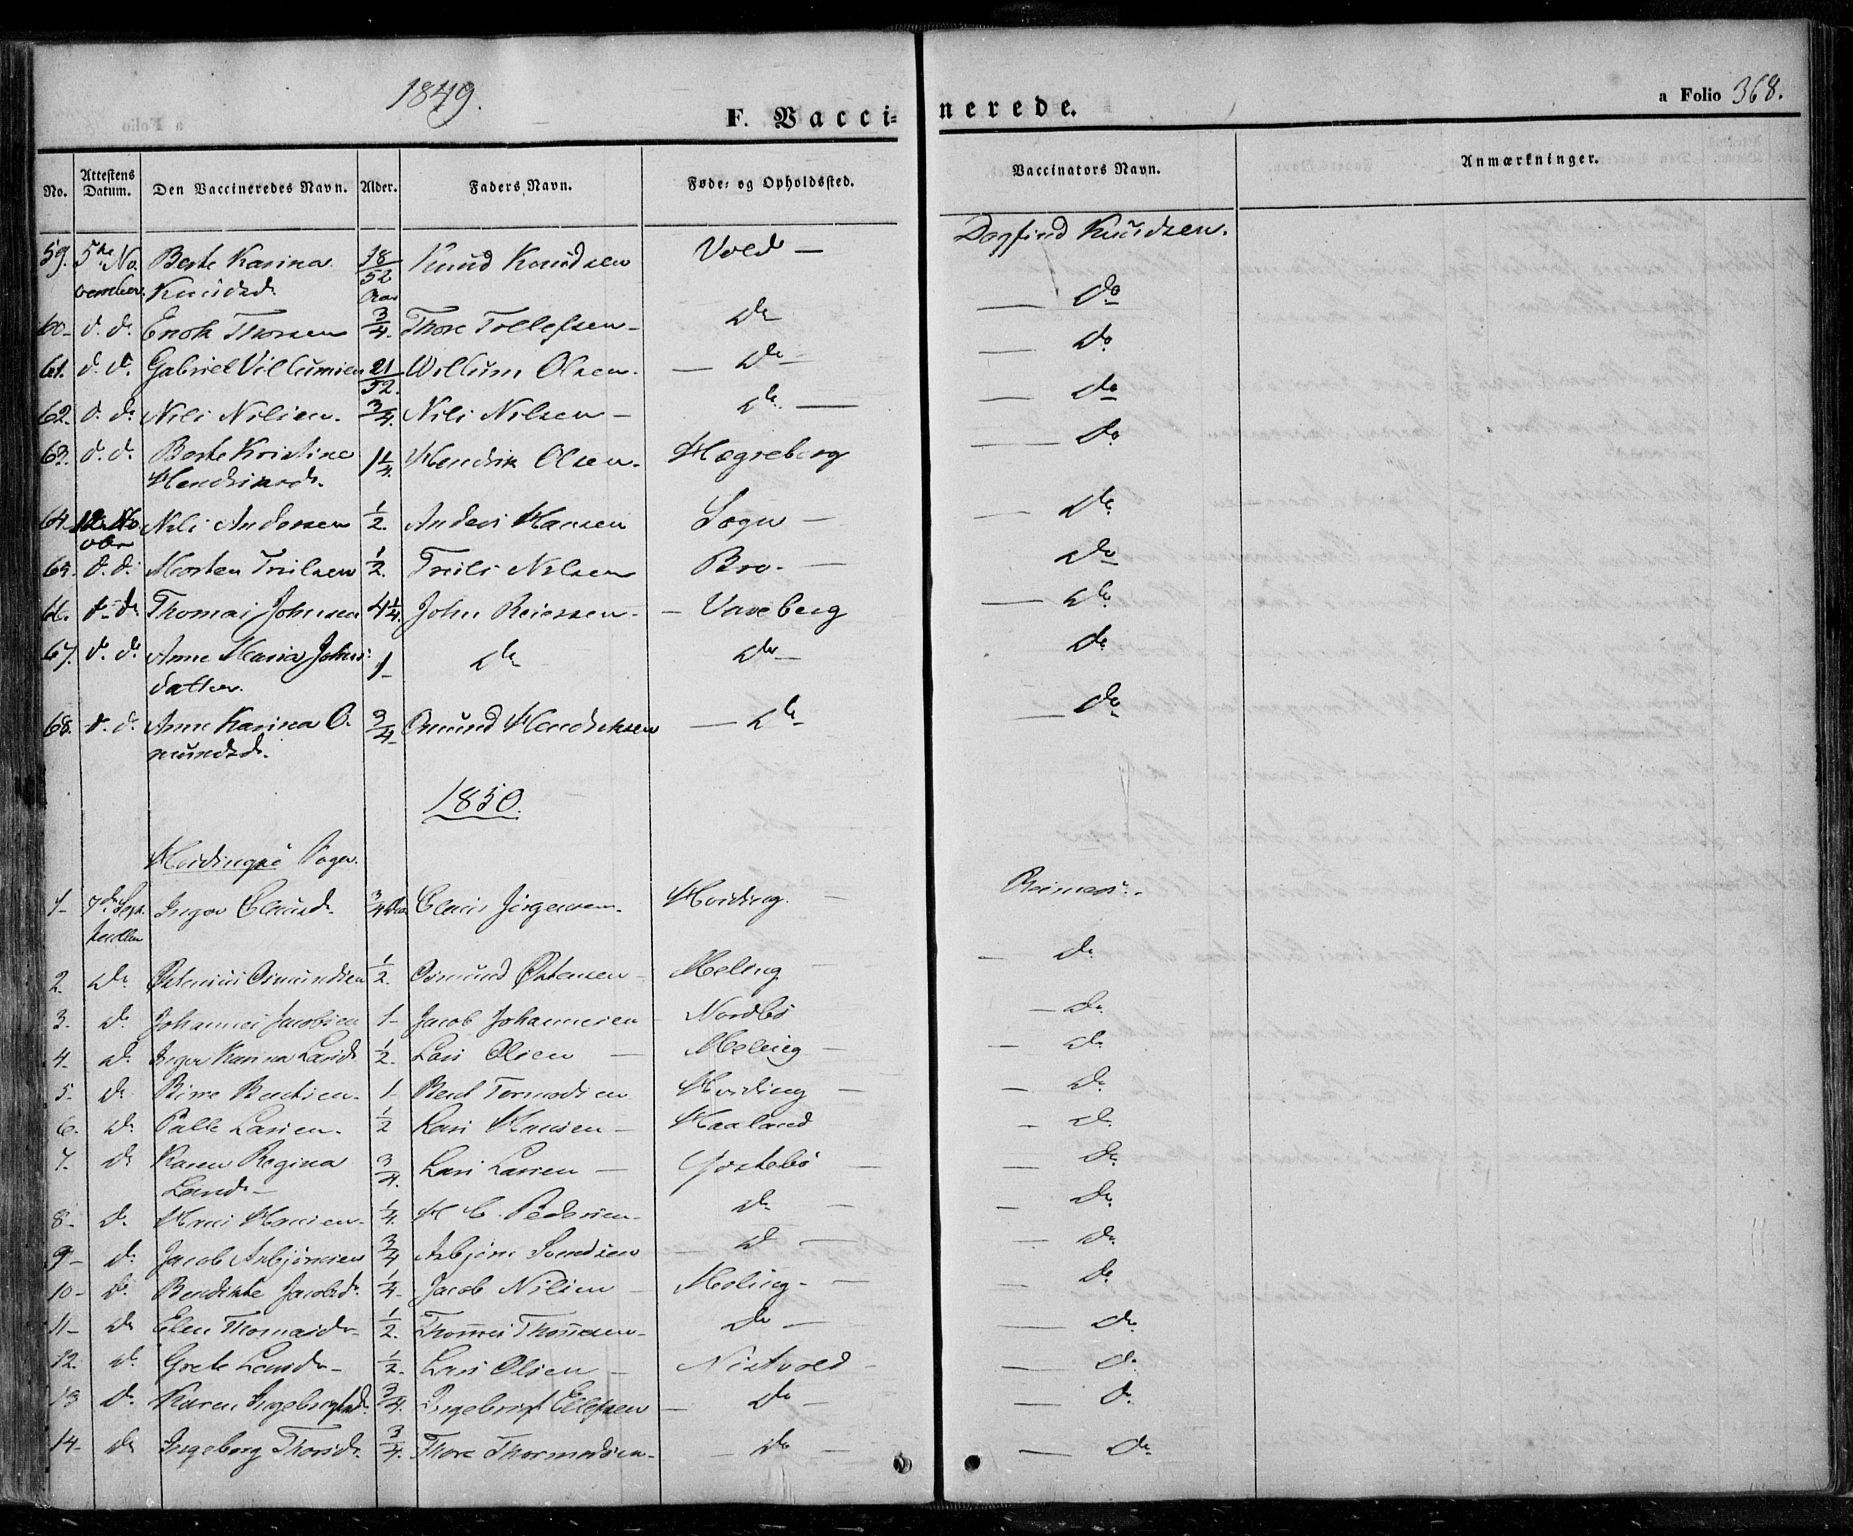 1849.
F. Vacci- nerede.
a Folio 368.
No. Attestens Datum. Den Vaccineredes Navn. Alder. Faders Navn. Føde- og Opholdssted. Vaccinators Navn. Anmærkninger.
59. 5te No- Berte Karina 38/52 Knud Knudsen Vold — Dagfind Knudsen.
vember. Knudsd. Aar
60- d. d. Enok Thorsen 3/4. Thore Tollefsen - do — do
61. d. d. Gabriel Villumsen 21/52. Willum Olsen. — do — do
62. d. do Nils Nilsen. 3/4. Nils Nilsen — do. — — do
63. d. d. Berte Kristine 1 1/4 Hendrik Olsen. Hægreberg — do
Hendriksd.
64. 12 No- Nils Andersen 1/2. Anders Hansen Sogn — — do
vbr
65. d. d. Morten Truilsen 1/2. Truils Nilsen Bro. — — do
66. d. do Thomas Johnsen 4 1/4. John Reiersen. — Vaveberg — do
67. d. do Anne Maria Johns- 1- do do — do
datter.
68. d. d. Anne Karina O- 3/4- Omund Hendriksen — do — do
mundsd.
1850.
Hvidingsø Sogn.
1- 7de Sept. Inger Clausd. 3/4 Aar Claus Jörgensen. Hviding. — Reimers.
2. do Østenius Osmundsen 1/2. Osmund Østensen Meling — — do
3. do Johannes Jacobsen 1- Jacob Johannesen Nordbö — do
4- do Inger Karina Larsd. 1/2. Lars Olsen — Meling — — do
5- do Berent Bentsen. 1- Bent Tormodsen Hviding — — do
6. do Palle Larsen. 1/2 Lars Hansen — Haaland — do
7. do Karen Regina 3/4. Lars Larsen — Gostebö — — do
Larsd. —
8- do Hans Hansen. 1/4. H. C. Pedersen. do — — do
9- do Jacob Asbjörnsen 3/4 Asbjörn Svendsen do — — do
10- do Bendikte Jacobsd. 1/4. Jacob Nilsen Meling. — — do
11- do Elen Thomasd. 1/2. Thomas Thomasen. do — — do
12. do Grete Larsd. 1/2. Lars Olsen — Nistvold — — do
13 do Karen Ingebrigtsd. 3/4. Ingebrigt Ellefsen — do — — do
14- do Ingeborg Thorsd. 3/4. Thore Thormodsen. — do — — do